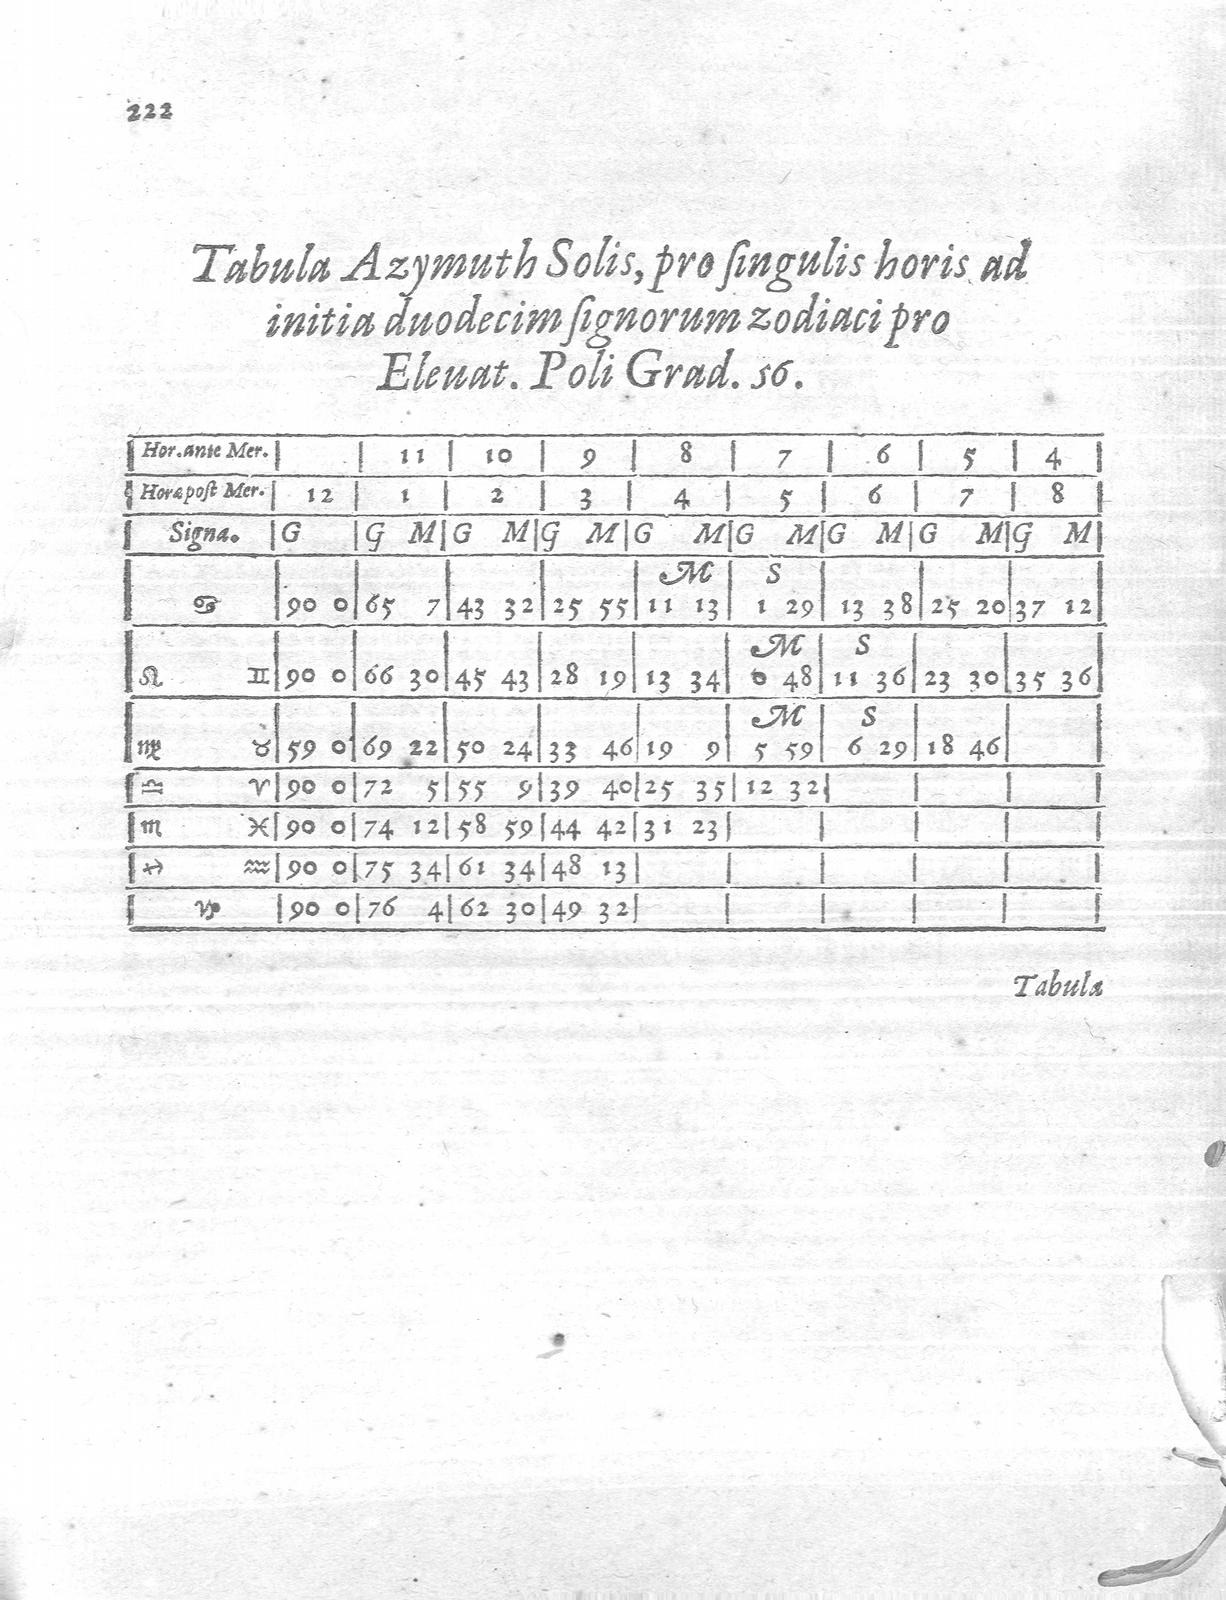 222
Tabula Azymuth Solis, pro ſingulis horis ad
initia duodecim ſignorum zodiaci pro
Eleuat. Poli Grad. 56.
Hor. ante Mer. | | 11 | 10 | 9 | 8 | 7 | 6 | 5 | 4
Horæ poſt Mer. | 12 | 1 | 2 | 3 | 4 | 5 | 6 | 7 | 8
Signa. | G | G M | G M | G M | G M | G M | G M | G M | G M
M S
♋ | 90 0 | 65 7 | 43 32 | 25 55 | 11 13 | 1 29 | 13 38 | 25 20 | 37 12
M S
♌ ♊ | 90 0 | 66 30 | 45 43 | 28 19 | 13 34 | 0 48 | 11 36 | 23 30 | 35 36
M S
♍ ♉ | 59 0 | 69 22 | 50 24 | 33 46 | 19 9 | 5 59 | 6 29 | 18 46 |
♎ ♈ | 90 0 | 72 5 | 55 9 | 39 40 | 25 35 | 12 32 | | |
♏ ♓ | 90 0 | 74 12 | 58 59 | 44 42 | 31 23 | | | |
♐ ♒ | 90 0 | 75 34 | 61 34 | 48 13 | | | | |
♑ | 90 0 | 76 4 | 62 30 | 49 32 | | | | |
Tabula